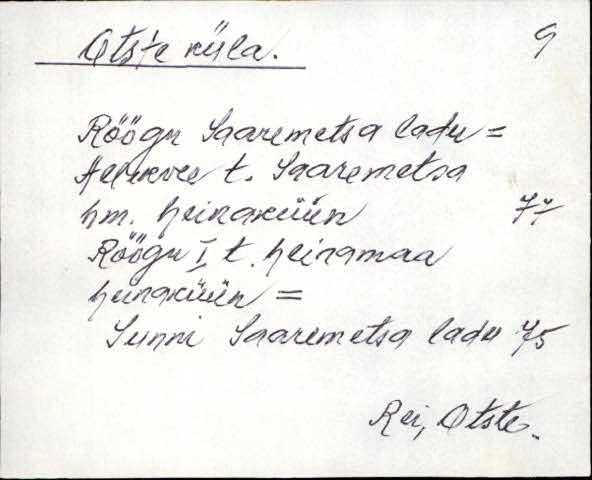 Otste küla.
9
Röögu Saaremetsa ladu =
t. Saaremetsa
hm. heinaküün 74
Röögu I t. heinamaa
heinaküün =
Sunni Saaremetsa ladu 75
Rei, Otste.